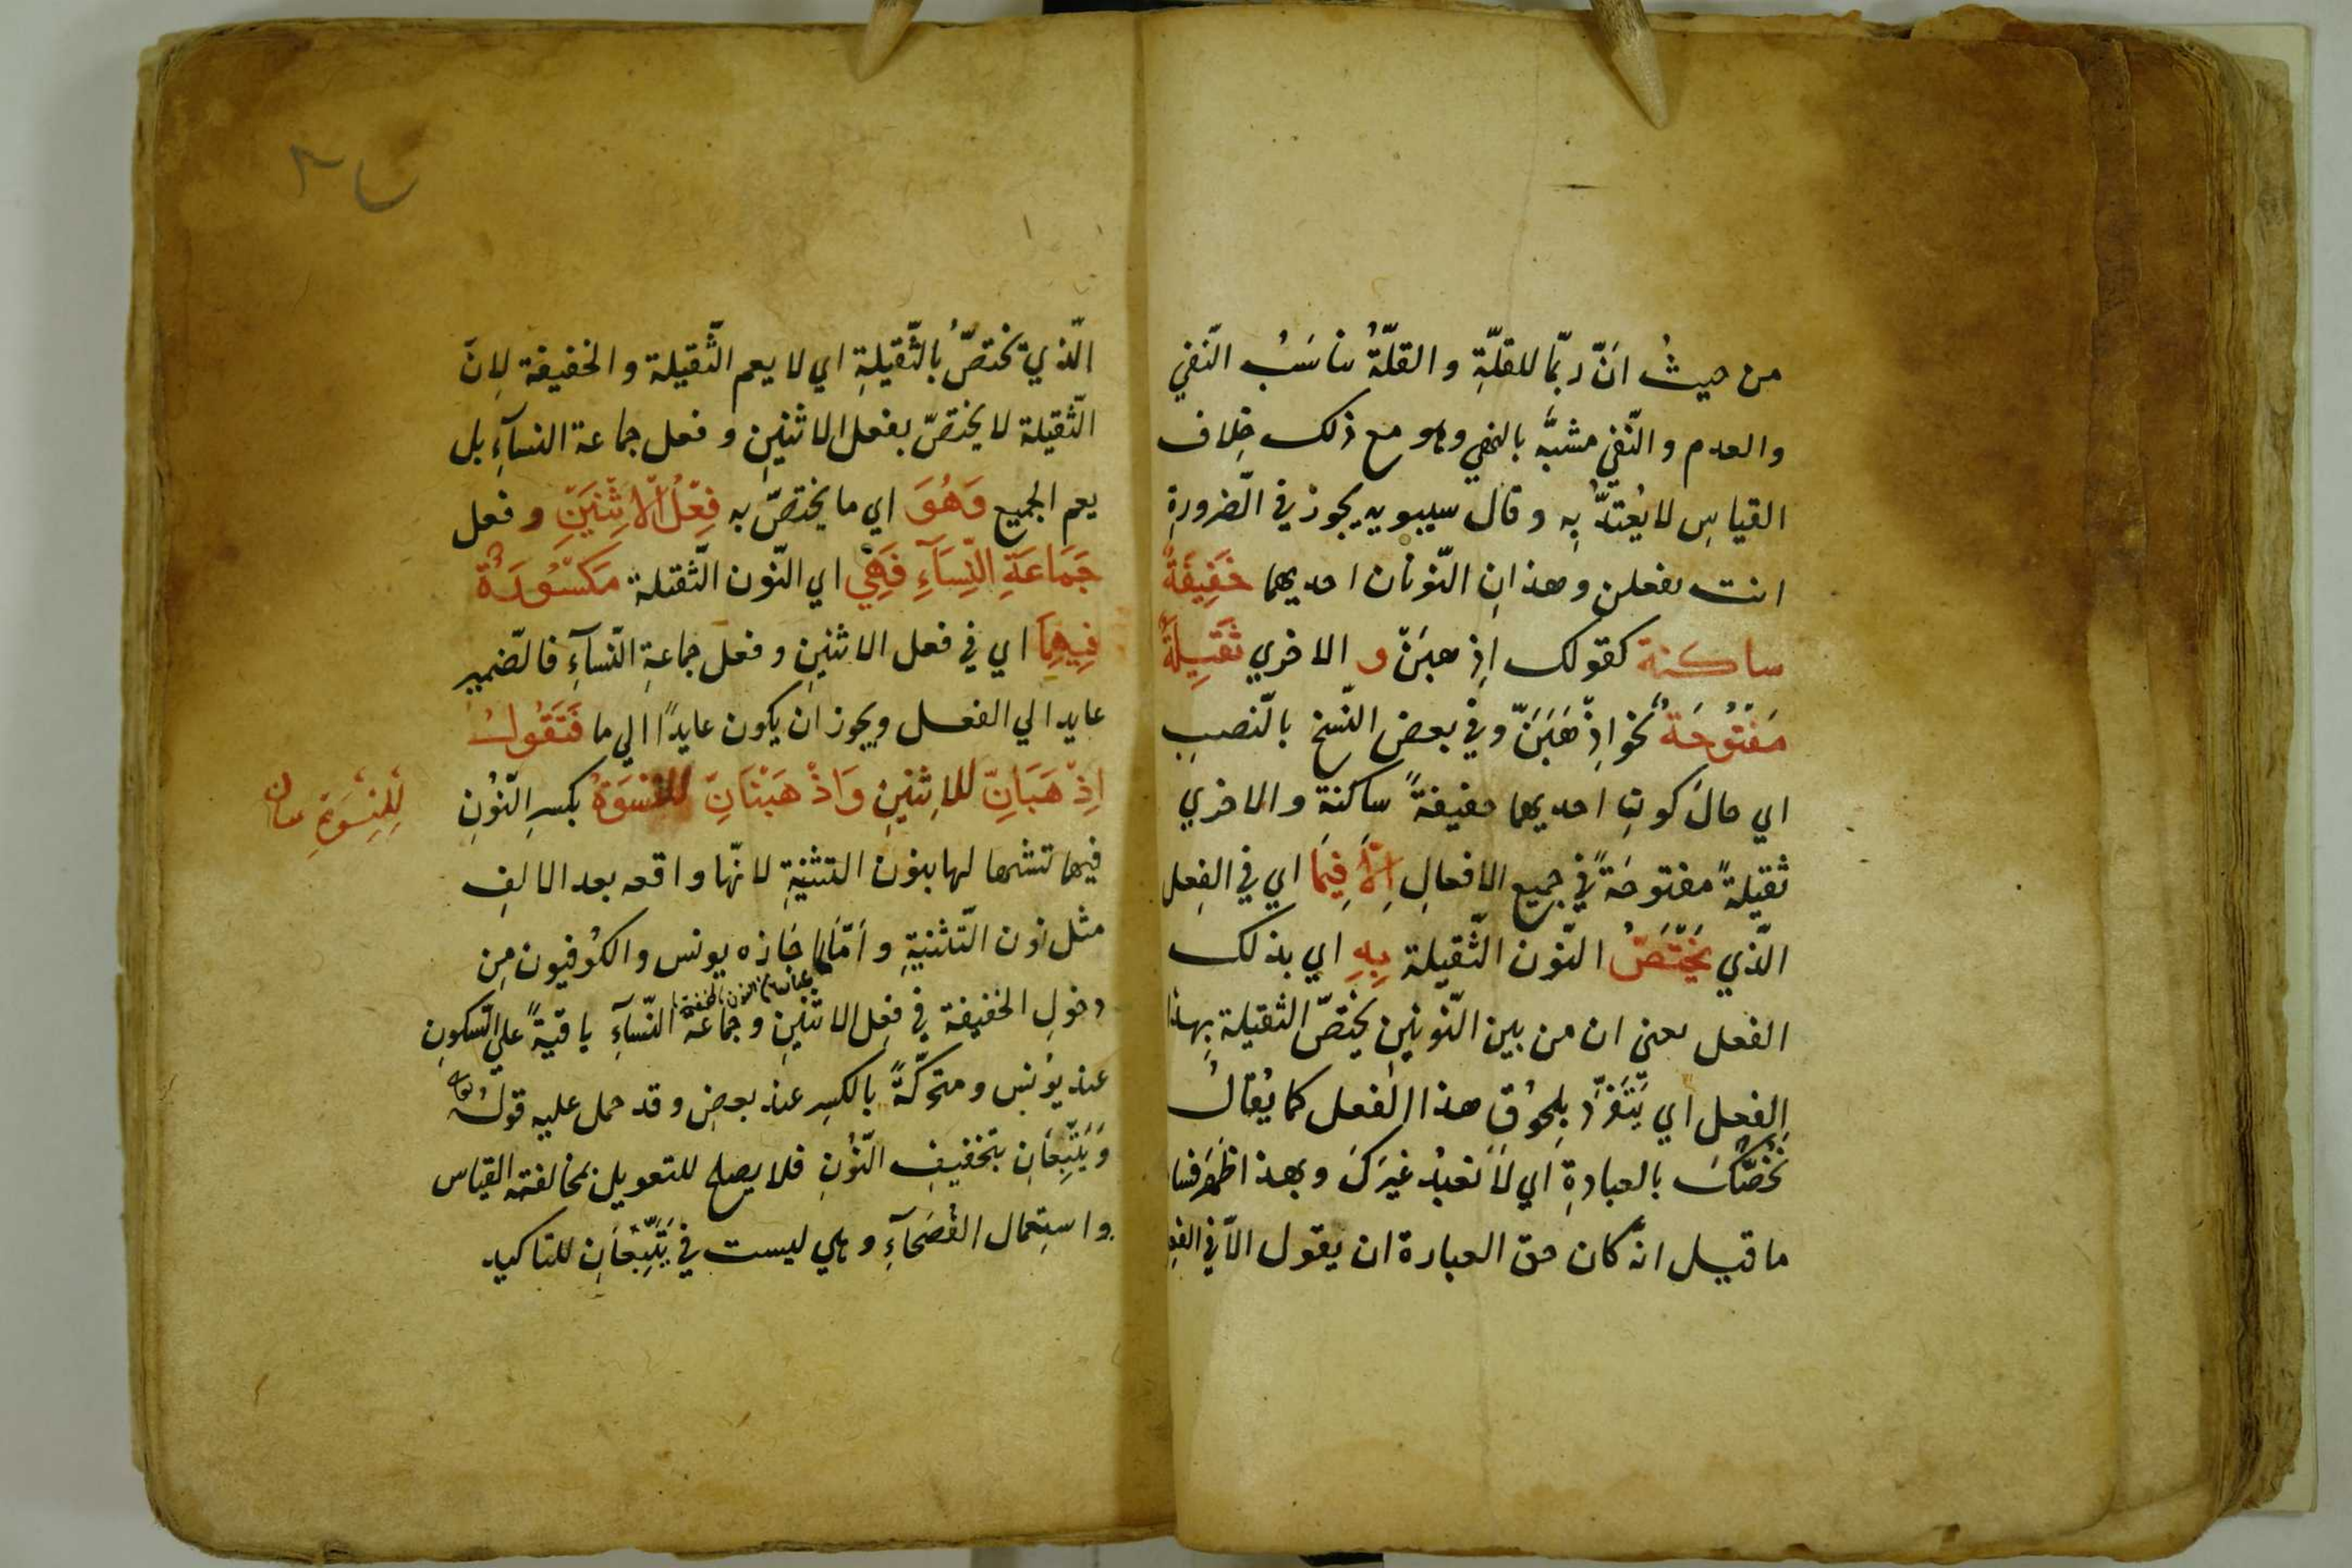 من حيثُ انّ ربّما للقلّةِ و القلّةُ يناسَبُ النّفي
والعدم و النّفي مشبهٌ بالنهي وهو مع ذلك خِلاف
القياسِ لا يُعتدُّ بِه و قال سيبويه يجوز في الضّرورةِ
انت تفعلن وهذانِ النّونان احديهما خَفِيفَةٌ
ساكنة كقولك اِذهبَنْ و الاخري ثَقِيلَةٌ
مَفْتُوحَةٌ نحو اِذْهَبَنَّ وفي بعض النّسخ بالنّصبِ
اي حالَ كونِ احديهما خفيفةً ساكنةِ والاخري
ثقيلةً مفتوحَةً في جميع الافعالِ اِلّا فِيمَا اي في الفِعل
الّذي يَخْتَصُّ النّون الثّقيلة بِهِ اي بذلك
الفعل يعني ان من بين النّونينِ يختصّ الثقيلة بِهذا
الفعل اي يَتَفَرَّد بِلحوُقِ هذا الفعل كما يُقالُ
نخُصُّكَ بالعبادةِ اي لَا نَعبُد غيرَكَ وبهذا ظَهَر فساد
ما قيل انّه كان حق العبارة ان يقول الّا في الفِعل
الّذي يختصُّ بِالثّقيلةِ اي لا يعم الثّقيلة و الخفيفة لِانّ
الثّقيلة لا يختصّ بفعل الاثنينِ و فعل جماعة النسآءِ بل
يعم الجميع وَهُوَ اي ما يختصّ به فِعْلُ الْاِثْنَيْنِ و فعل
جَمَاعَةِ النِّسَآءِ فَهِيَ اي النّون الثّقيلة مَكْسُورَةٌ
فِيهِمَا اي في فعل الاثنينِ و فعل جماعةِ النّسآءِ فالضّمير
عايد الي الفعل ويجوز ان يكون عايدًا الي ما فَتَقُولُ
اِذْهَبَانِّ للاِثنينِ وَاذْهَبْنَانِّ للنسوَةِ بكسرِ النّوُنِ
لِلنِّسْوَةِ
فيهما تشبيها لها بنون التثنيةِ لانّها واقعه بعد الالفِ
مثل نون التّثنيةِ و امّا ما جَازه يونس والكوُفيون مِن
دخولِ الخفيفة في فِعلِ الاثنينِ و جماعة النّسآءِ باقيةً علي السّكونِ
عند يوُنس و متحرّكةً بالكسرِ عند بعضٍ و قد حمل عليه قولُه تعالي
وَلَا تَتَّبِعَانِ بتخفيفِ النّوُنِ فلا يصلح للتعويل لمخالفته القياس
واستِعمال الفُصَحآءِ وهي ليست في تَتَّبِعَانِ للتاكيد